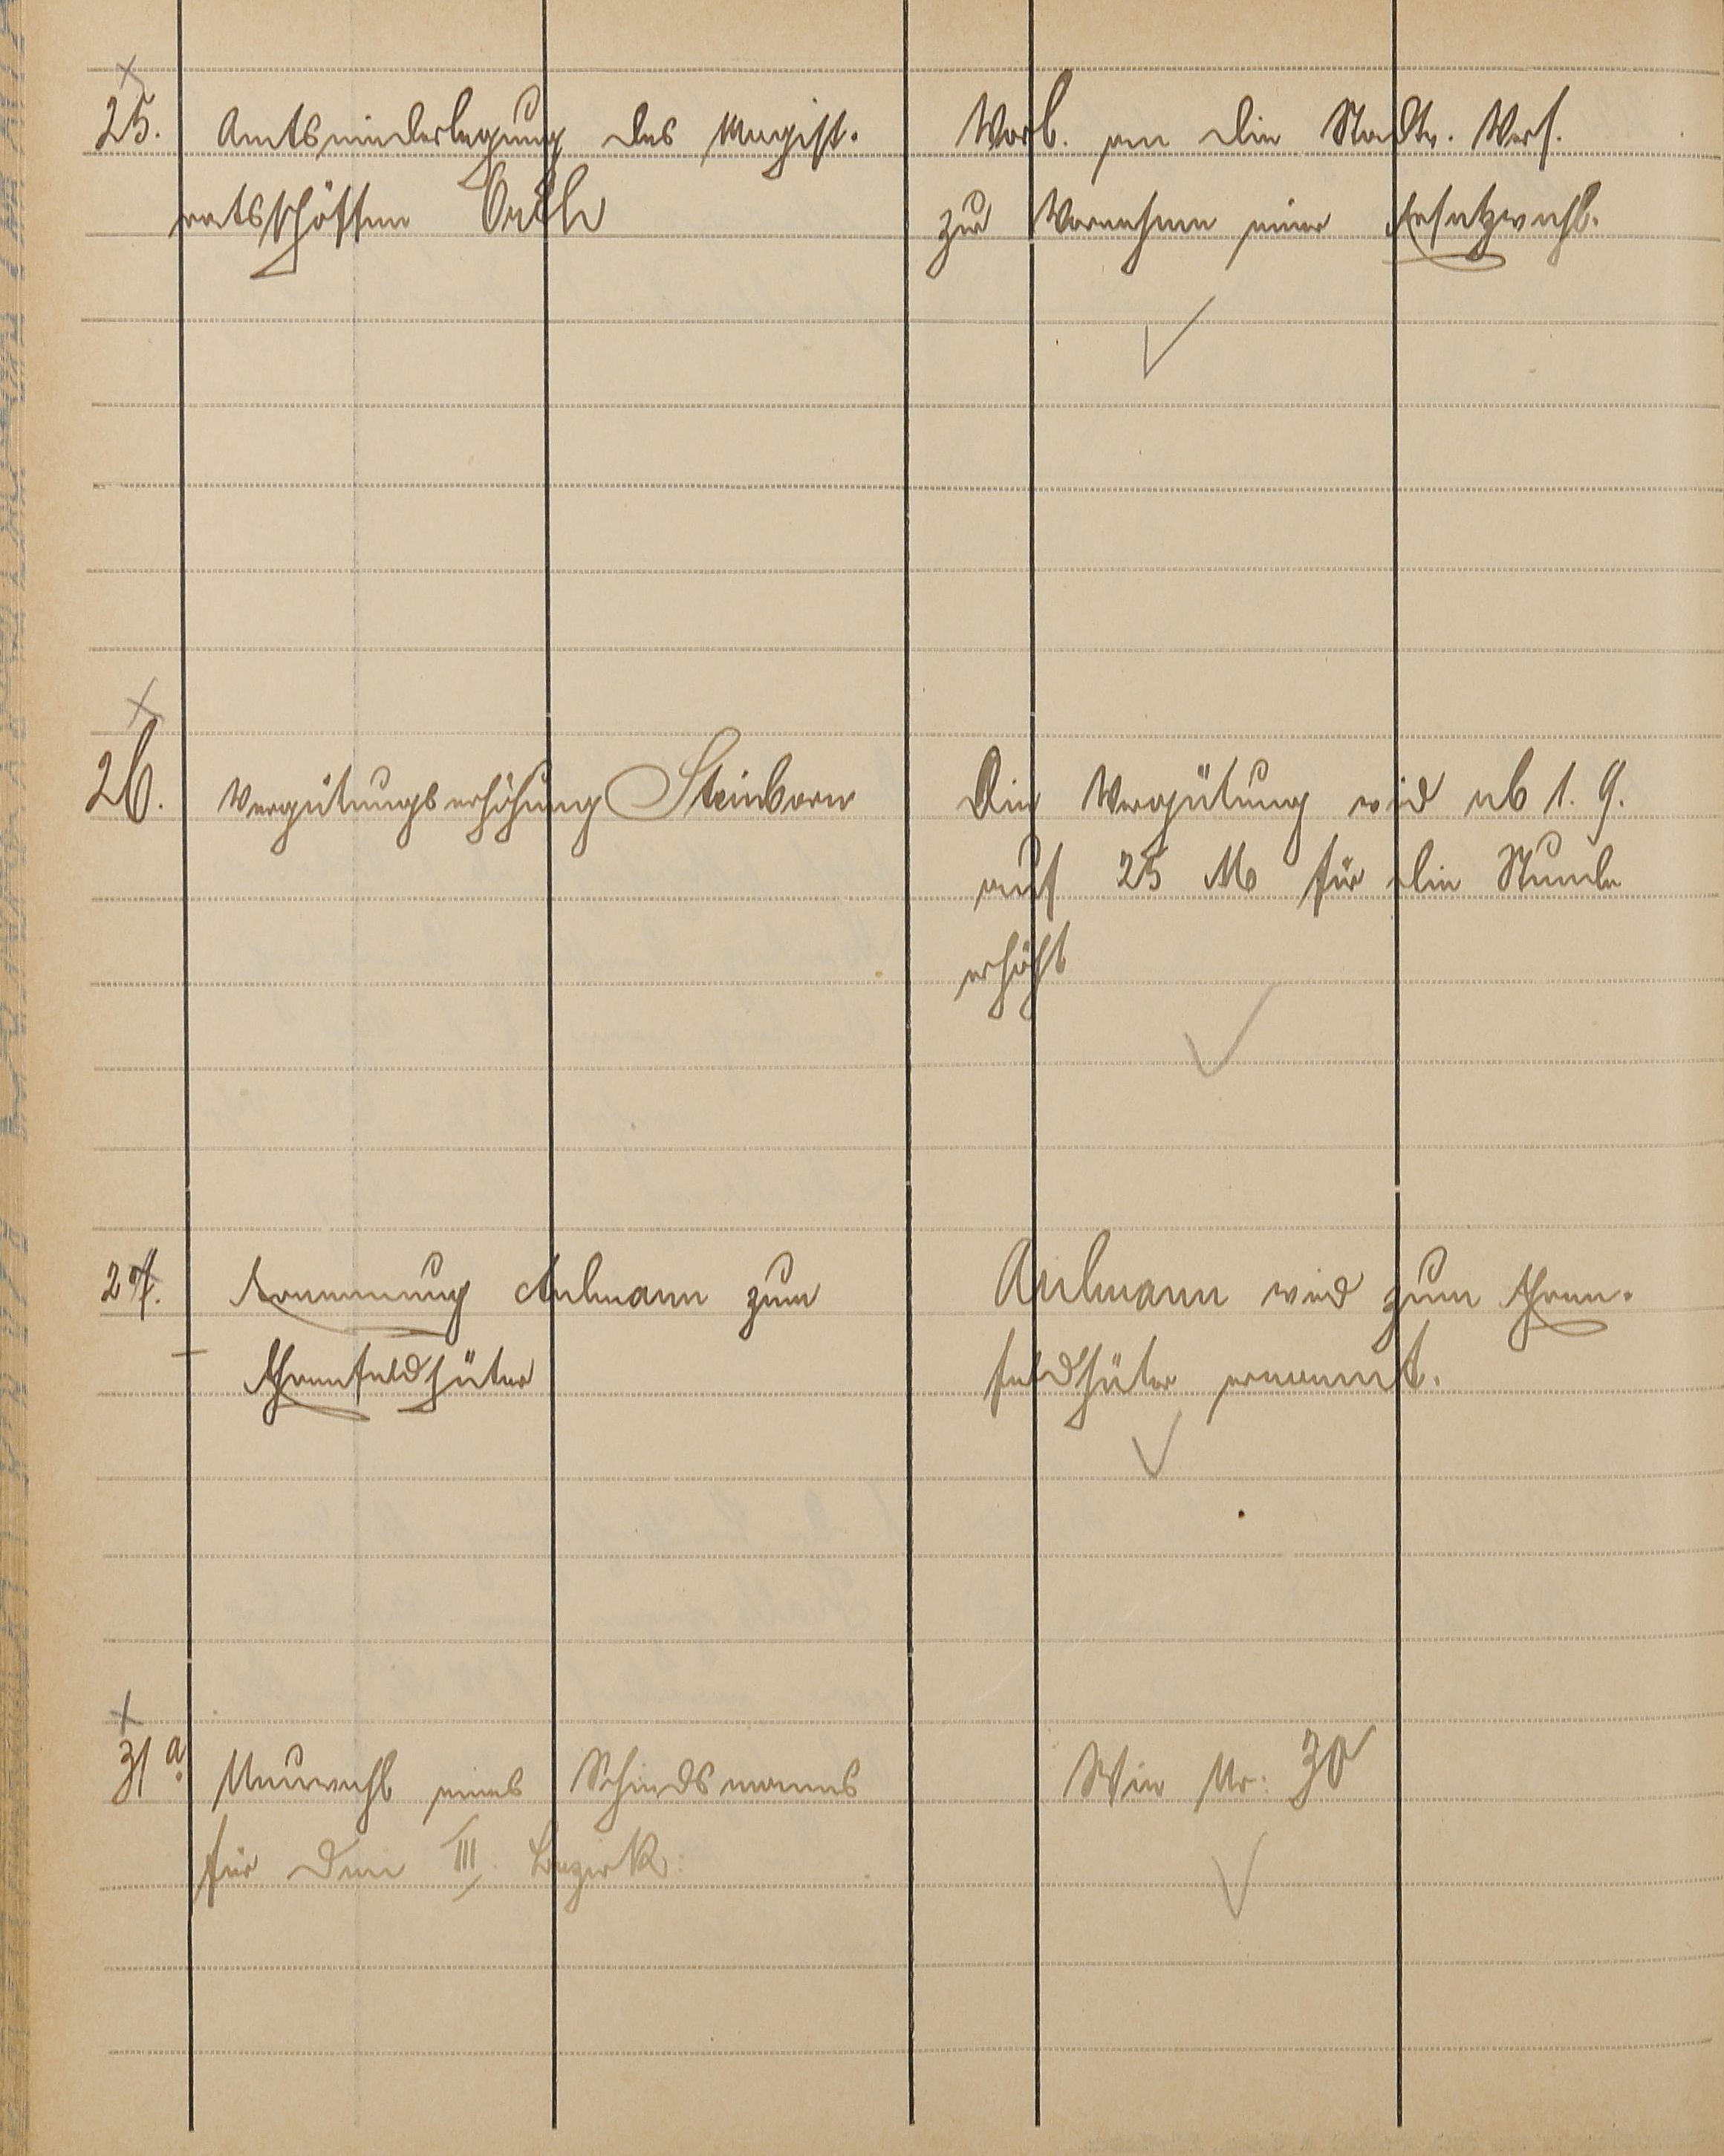 25. Amtsniederlegung des Magist-
ratsschöffen
Vorl. an die Stadtv. Vers.
zur Vornahme einer Ersatzwahl.
26. Vergütungserhöhung Steinborn
Die Vergütung wird ab 1. 9.
auf 25 M für die Stunde
erhöht
27. Ernennung Aulmann zum
Ehrenfeldhüter
Aulmann wird zum Ehren-
feldhüter ernannt.
31a. Neuwahl eines Schiedsmanns
für den III. Bezirk.
Wie Nr: 30